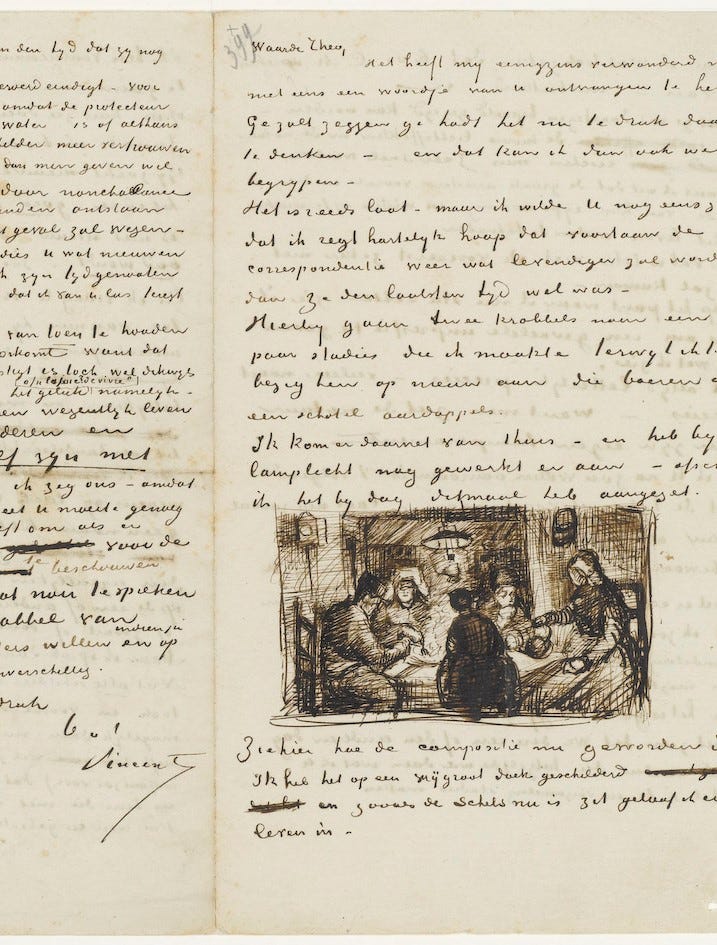 n den tyd dat zy nog
eerd eindigt – voor
omdat de protecteur
water is of althans
helder meer vertrouwen
dan men geven wil.
door nonchalance
nden ontstaan
t geval zal wezen –
dies u wat nieuwen
h zyn tyd genomen
dat ik van u las
van loven te houden
orkomt want dat
is toch wel
o/n la joie de vivre
het geluk namelyk –
en wezentlyk leven
deren en
ef zyn met
ik zeg ons – omdat
eet u moeite genoeg
eft om als er
voor de
te beschouwen
at nou te spreken
abbel van
indien ja
ers willen en op
nverschillig.
druk
b. à t.
Vincent
399
Waarde Theo,
Het heeft my eenigzins verwonderd n
met eens een woordje van u ontvangen te he
Ge zult zeggen ge hadt het nu te druk daa
te denken – en dat kan ik dan ook we
begrypen –
Het is reeds laat – maar ik wilde u nog eens z
dat ik regt hartelyk hoop dat voortaan de
correspondentie weer wat levendiger zal word
dan ze den laatsten tyd wel was –
Hierby gaan twee krabbels naar een
paar studies die ik maakte terwyl ik t
bezig ben op nieuw aan die boeren o
een schotel aardappels.
Ik kom er daarnet van thuis – en heb by
lamplicht nog gewerkt er aan – ofsch
ik het by dag ditmaal heb aangezet.
Ziehier hoe de compositie nu geworden i
Ik heb het op een vry groot doek geschilderd
en zooals de schets nu is zit geloof ik er
leven in –